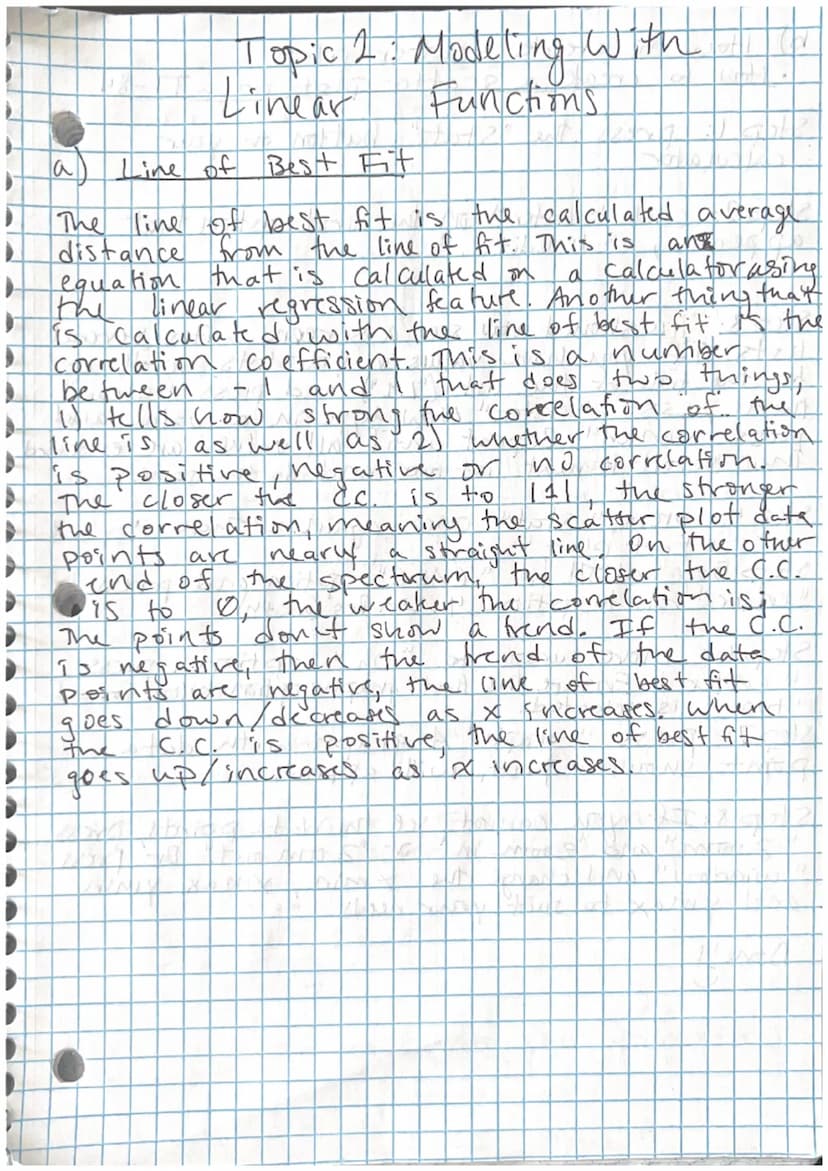 Topic 2: Modeling With
Linear Functions
a) Line of Best Fit
The line of best fit is the calculated average
distance from the line of fit. This is an
equation that is calculated on a calculator using
the linear regression feature. Another thing that
is calculated with the line of best fit is the
correlation coefficient. This is a number
between -1 and 1 that does two things,
1) tells how strong the correlation of the
line is as well as 2) whether the correlation
is positive, negative or no correlation.
The closer the C.C. is to |1|, the stronger
the correlation, meaning the scatter plot data
points are nearly a straight line. On the other
end of the spectrum, the closer the C.C.
is to 0, the weaker the correlation is;
The points don't show a trend. If the C.C.
is negative, then the trend of the data
points are negative, the line of best fit
goes down/decreases as x increases. When
the C.C. is positive, the line of best fit
goes up/increases as x increases.